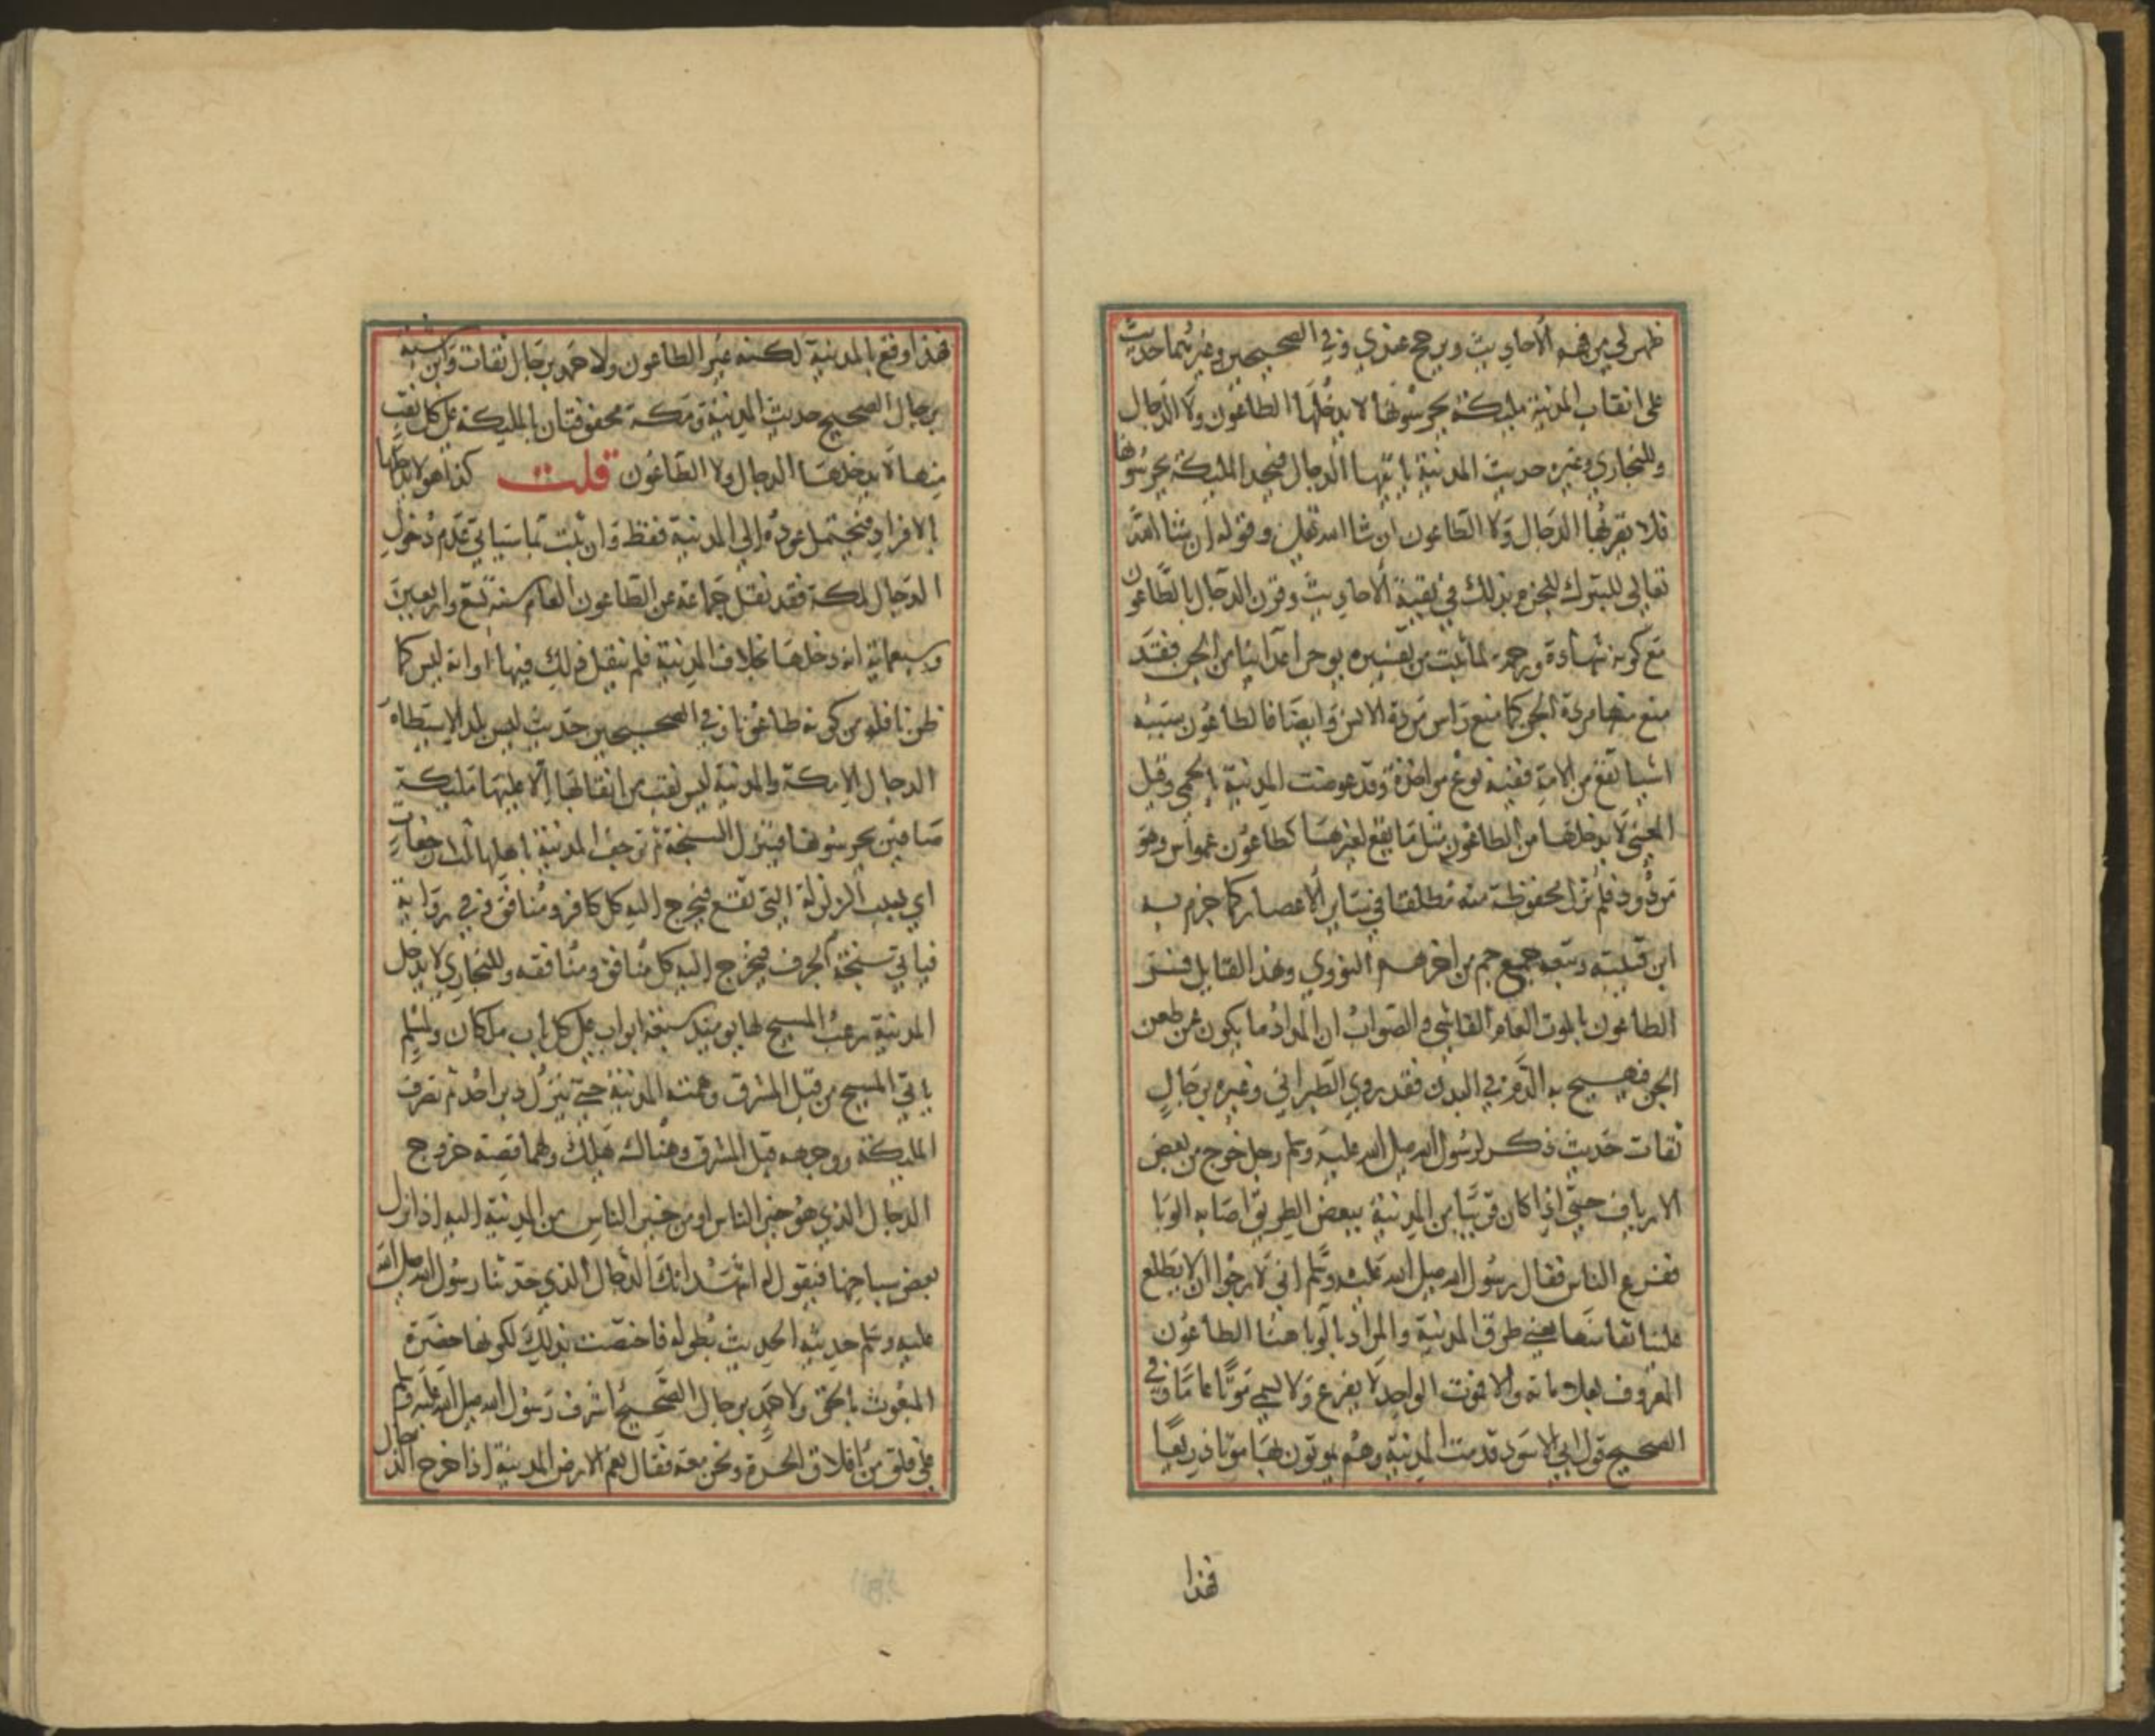 ظهر لي من فهم الأحاديث ويرجح عندي وفي الصحيحين وغيرهما حديث
على انقاب المدينة مليكة يحرسونها لا يدخلها الطاعون ولا الدجال
وللبخاري وغيره حديث المدينة ياتيها الدجال فيجد المليكة يحرسونها
فلا يقربها الدجال ولا الطاعون ان شا الله تعالى وقوله ان شا الله
تعالى للتبرك للجزم بذلك في بقية الأحاديث وقرن الدجال بالطاعون
مع كونه شهادة ورحمة لما ثبت من تفسيره بوخز اعدائنا من الجن فقد
منع منها مردة الجن كما منع راس مردة الانس وايضا فالطاعون سببه
اشيا تقع من الامة ففيه نوع مواخذة وقد عوضت المدينة بالحمى وقيل
المعنى لا يدخلها من الطاعون مثل ما يقع لغيرها كطاعون عمواس وهو
مردود فلم تزل محفوظة منه مطلقا في ساير الأعصار كما جزم به
ابن قتيبة وتبعه جمع جم من اخرهم النووي وهذا القايل فسر
الطاعون بالموت العام الفاشي والصواب ان المراد ما يكون عن طعن
الجن فيهيج به الدم في البدن فقد روي الطبراني وغيره برجال
ثقات حديث ذكر لرسول الله صلى الله عليه وسلم رجل خرج من بعض
الارياف حتى اذا كان قريبا من المدينة ببعض الطريق اصابه الوبا
ففزع الناس فقال رسول الله صلى الله عليه وسلم اني لارجوا ان لا يطلع
علينا نقابها يعني طرق المدينة والمراد بالوبا هنا الطاعون
المعروف بعلاماته والا فموت الواحد لا يفزع ولا يسمى موتا عاما وفي
الصحيح قول ابي الاسود قدمت المدينة وهم يموتون بها موتا ذريعا
فهذا
فهذا وقع بالمدينة لكنه غير الطاعون ولاحمد برجال ثقات وابن شبه
برجال الصحيح حديث المدينة ومكة محفوفتان بالمليكة على كل نقب
منها لا يدخلها الدجال ولا الطاعون قلت كذا هو لا يدخلها
بالافراد فيحتمل عوده إلي المدينة فقط وان ثبت ما سياتي عدم دخول
الدجال لمكة فقد نقل جماعة عن الطاعون العام سنة تسع واربعين
وسبعماية انه دخلها بخلاف المدينة فلم ينقل ذلك فيها أو انه ليس كما
ظن ناقله من كونه طاعونا وفي الصحيحين حديث ليس بلد الا سيطاه
الدجال إلا مكة والمدينة ليس نقب من انقابها إلا عليها مليكة
صافين يحرسونها فينزل السبخة ثم ترجف المدينة باهلها ثلاث رجفات
اي بسبب الزلزلة التي تقع فيخرج اليه كل كافر ومنافق وفي رواية
فياتي سبخة الجرف فيخرج اليه كل منافق ومنافقه وللبخاري لا يدخل
المدينة رعب المسيح لها يوميذ سبعة ابواب على كل باب ملكان ولمسلم
ياتي المسيح من قبل المشرق وهمته المدينة حتى ينزل دبر احد ثم تصرف
المليكة وجهه قبل المشرق وهناك هلك ولهما قصة خروج
الدجال الذي هو خير الناس او من خير الناس من المدينة اليه اذا نزل
بعض سباخها فيقول له اشهد انك الدجال الذي حدثنا رسول الله صلى الله
عليه وسلم حديثه الحديث بطوله فاختصت بذلك لكونها حضرة
المبعوث بالحق ولاحمد برجال الصحيح اشرف رسول الله صلى الله عليه وسلم
على فلق من افلاق الحرة ونحن معه فقال نعم الارض المدينة اذا خرج الدجال